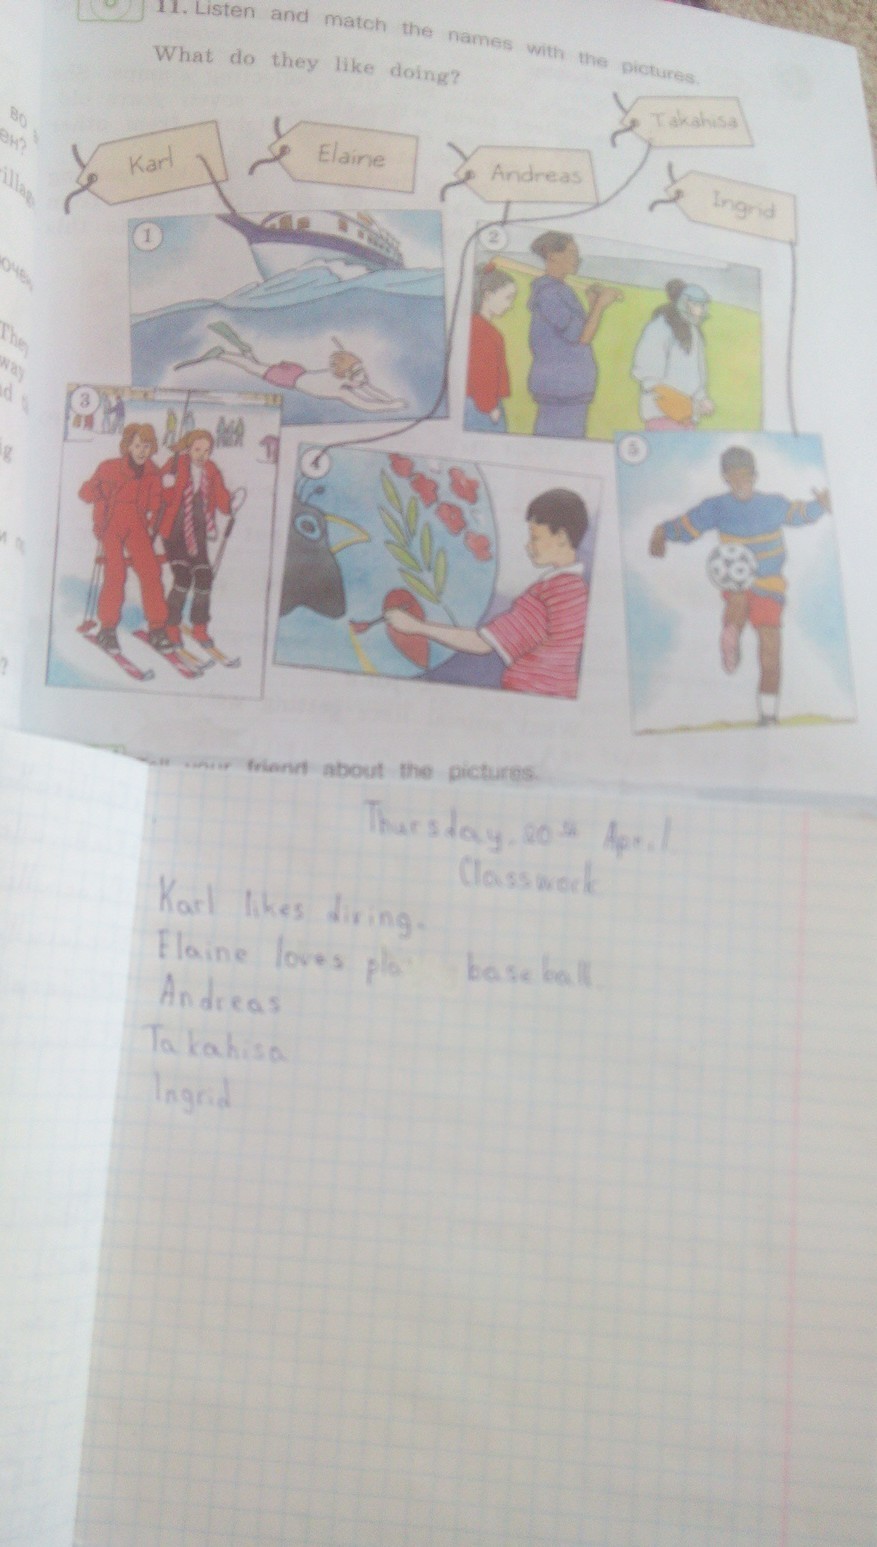 11. Listen and match the names with the pictures.
What do they like doing?
Takahisa
Karl
Elaine
Andreas
Ingrid
1
2
3
4
5
во
ен?
illag
The
way
d
ig
?
your friend about the pictures.
Thursday. 20th April
Classwork
Karl likes diving.
Elaine loves pla baseball
Andreas
Takahisa
Ingrid